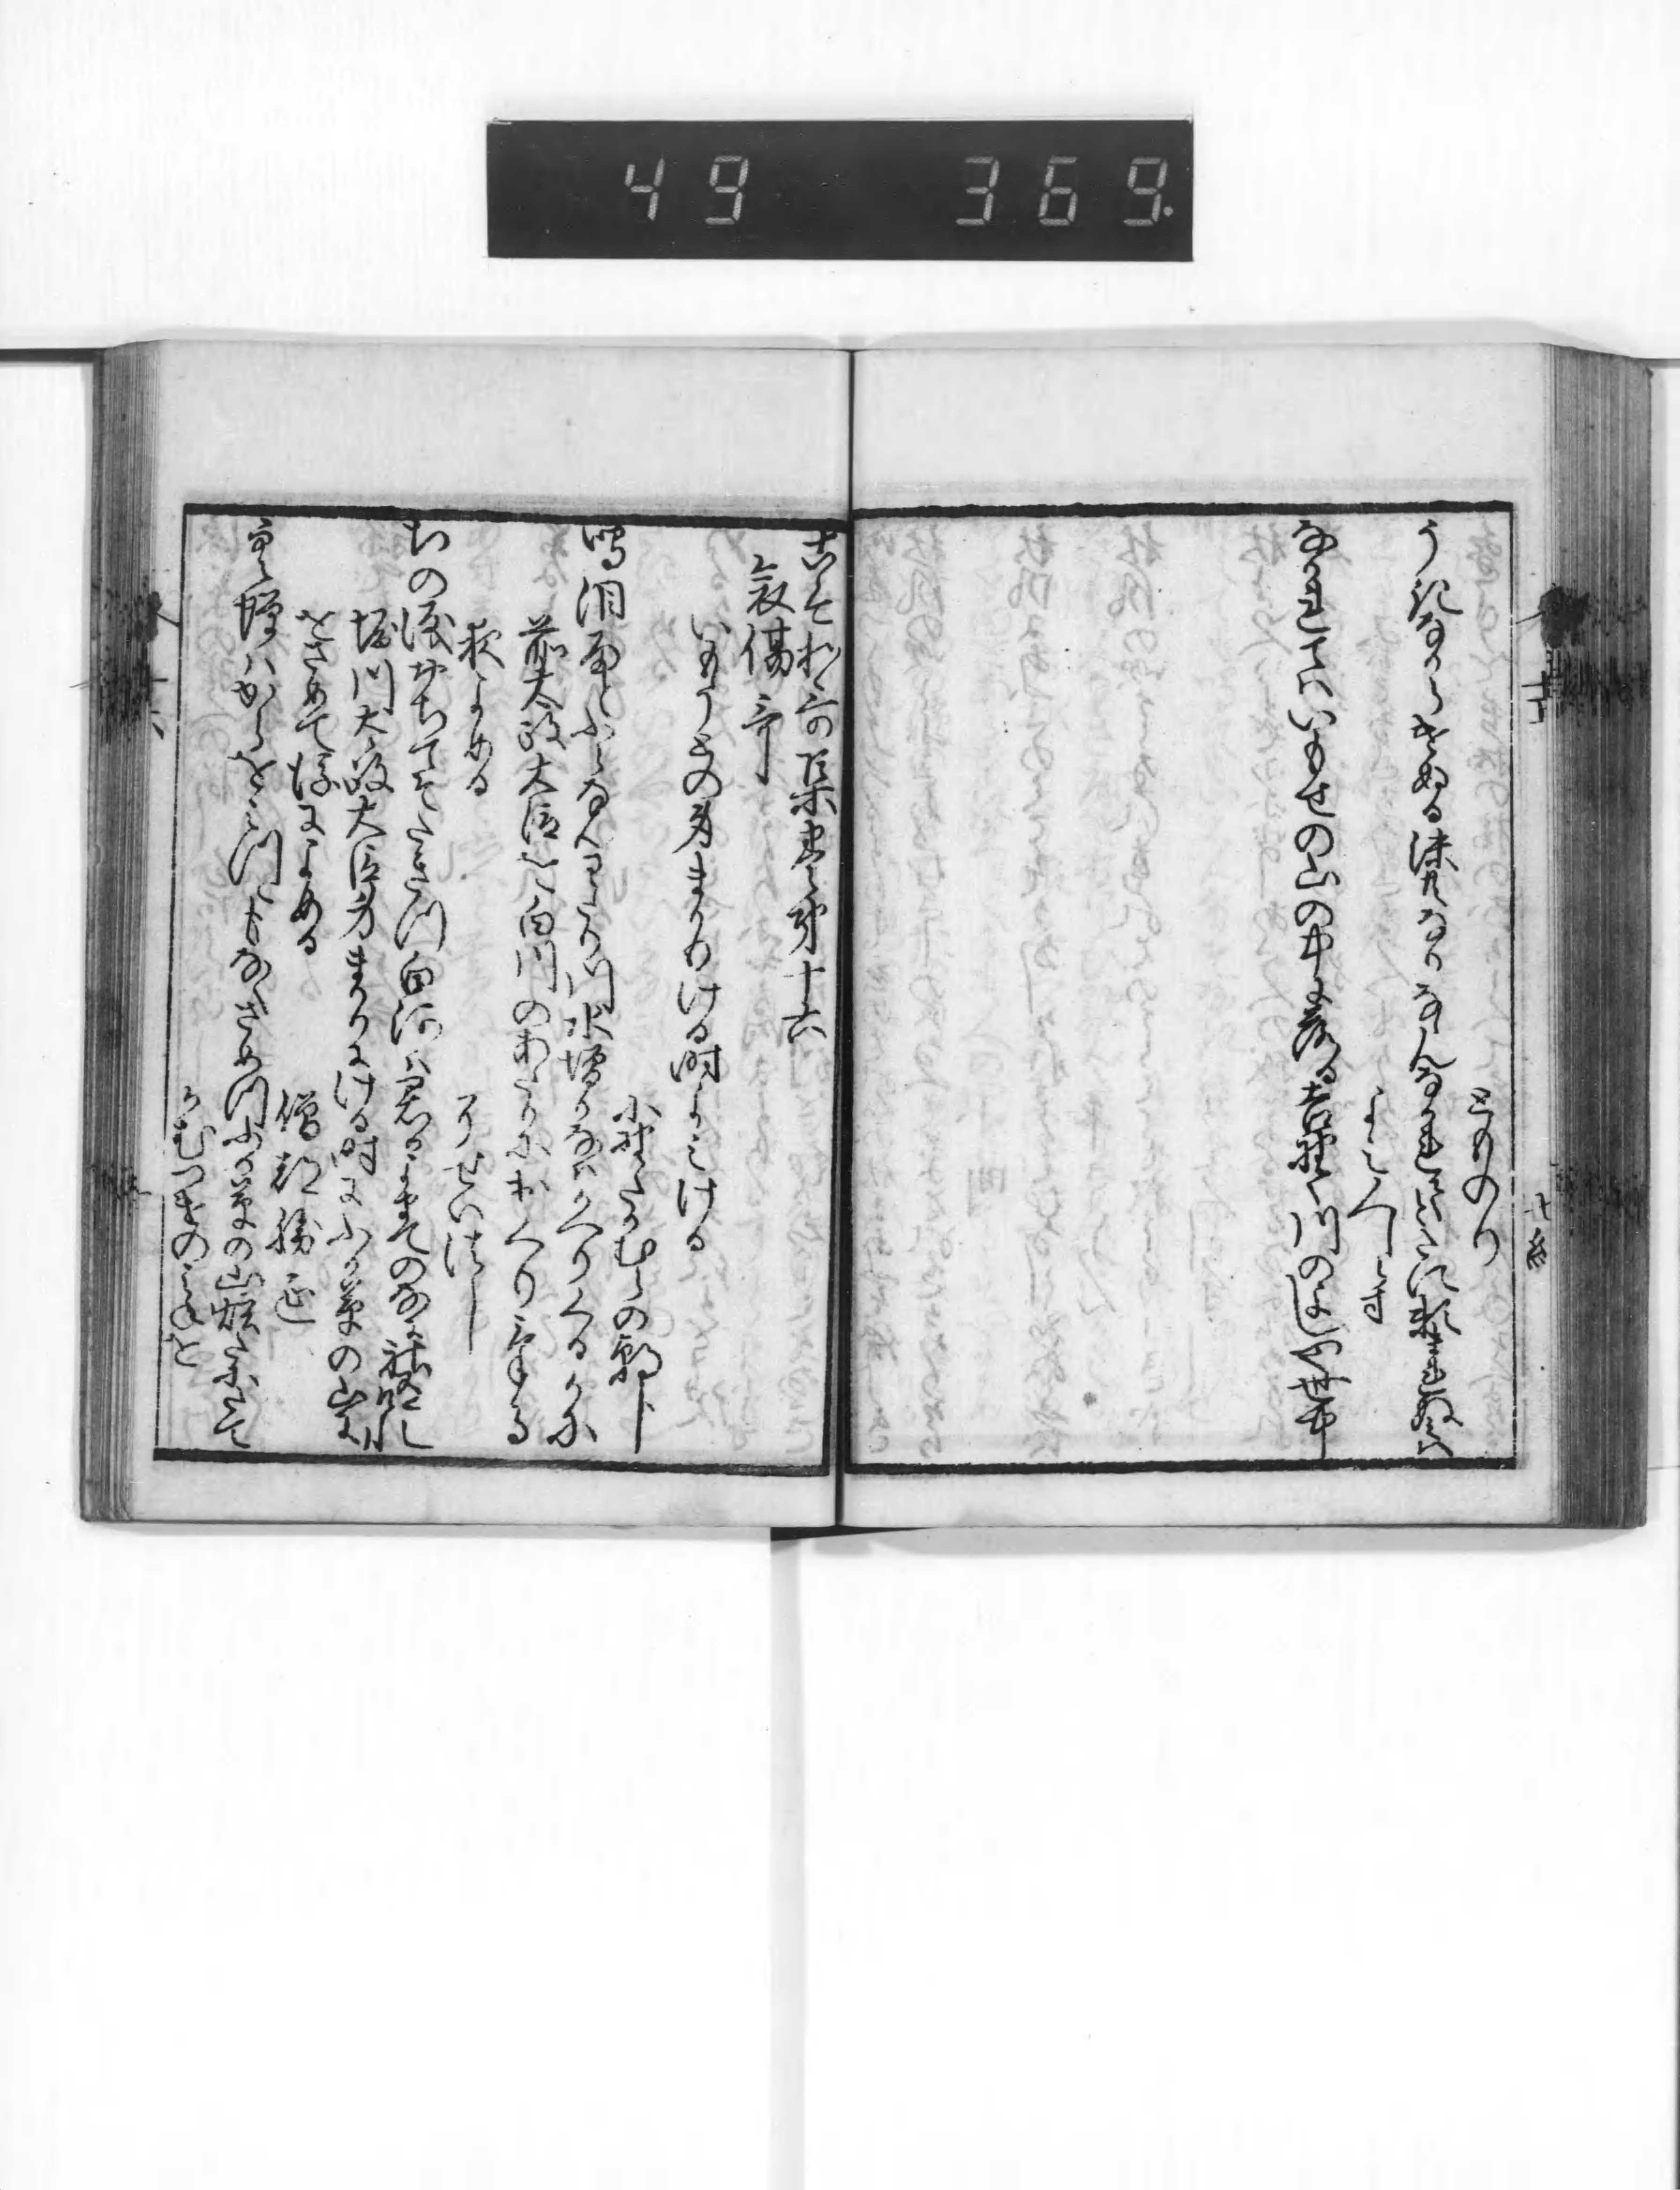 49 369
とものり
うきなからけぬる沫ともなりなゝんなかれてとたにたのまれぬ身は
よみ人しらす
なかれてはいもせの山の中に落る吉野の川のよしや世中
古今和哥集巻第十六
哀傷哥
いもうとの身まかりける時よみける
小野たかむらの朝臣
鳴泪雨とふらなんわたり川水増りなはかへりくるかに
前太政大臣を白川のあたりにおくりける
夜よめる
そせいほうし
ちの涙おちてそたきつ白河は君か世まての名にこそ有けれ
堀川太政大臣身まかりにける時にふか草の山に
おさめて後によめる
僧都勝延
空蝉はからをみつゝもなくさめつ深草の山煙たにたて
かむつけのみねを